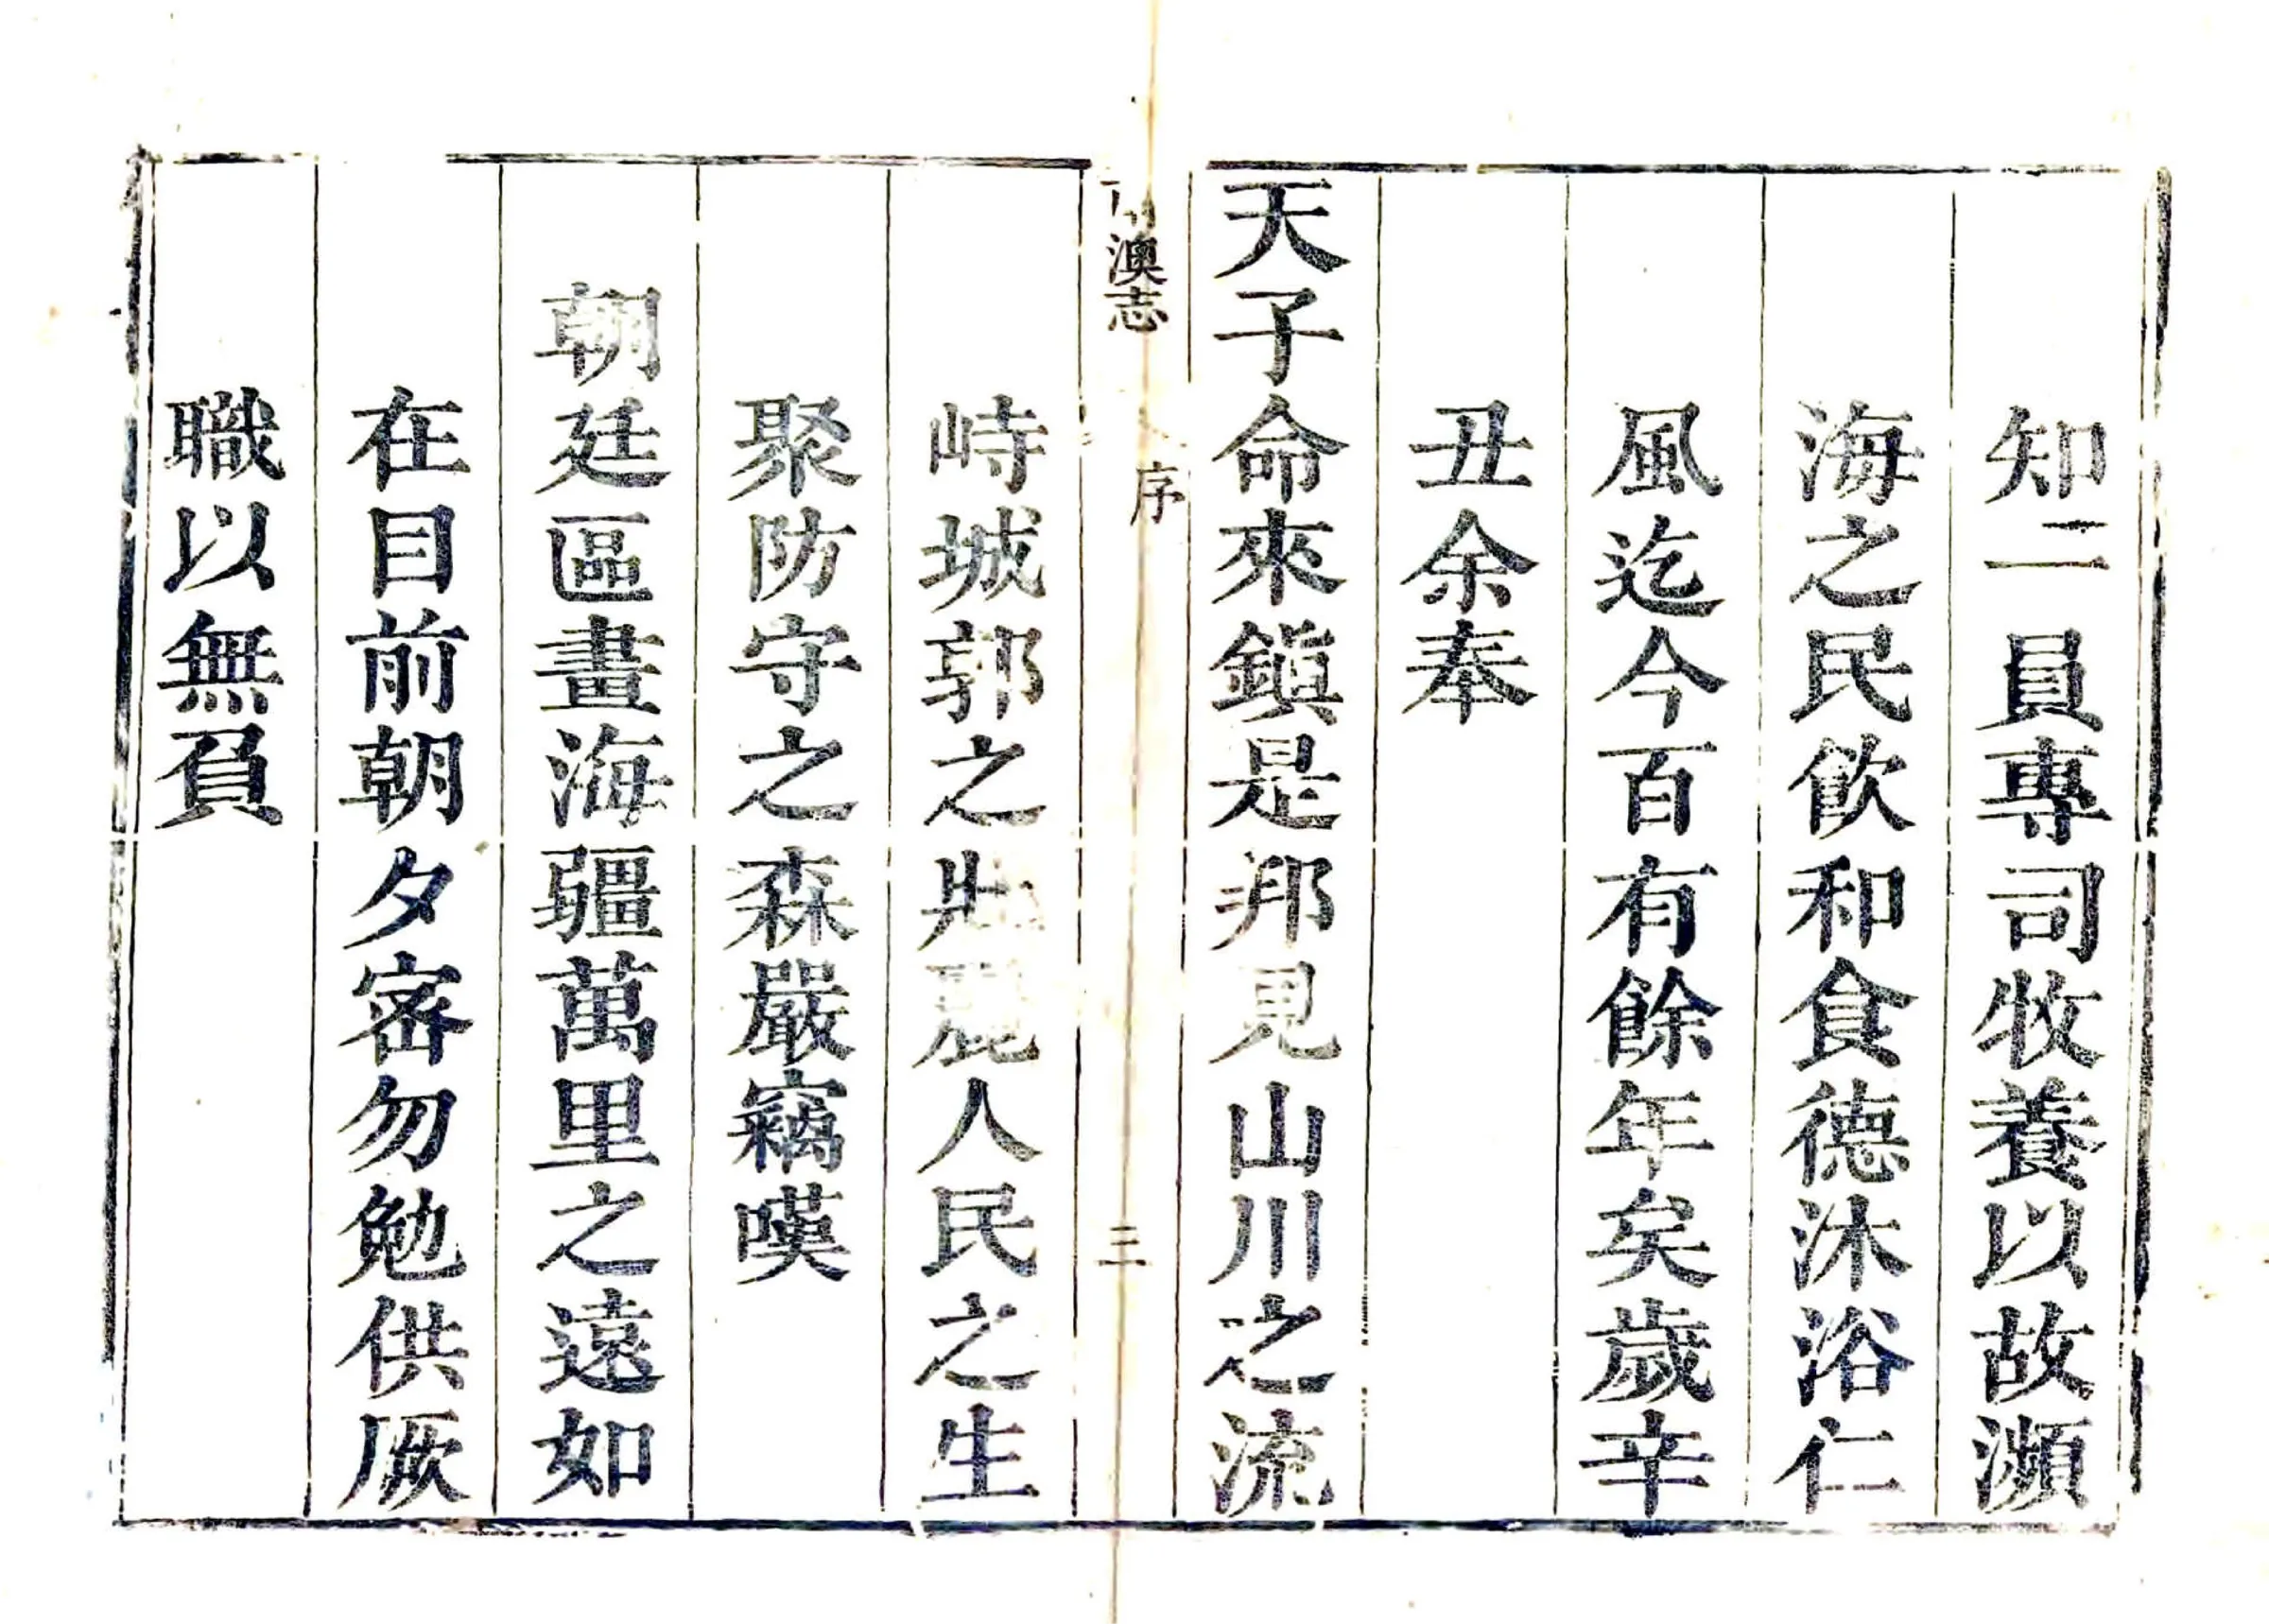 知二員專司牧養以故瀕
海之民飲和食德沐浴仁
風迄今百有餘年矣歲辛
丑余奉
天子命來鎭是邦見山川之流
南澳志
序
三
峙城郭之壯麗人民之生
聚防守之森嚴竊嘆
朝廷區畫海疆萬里之遠如
在目前朝夕宻勿勉供厥
職以無負